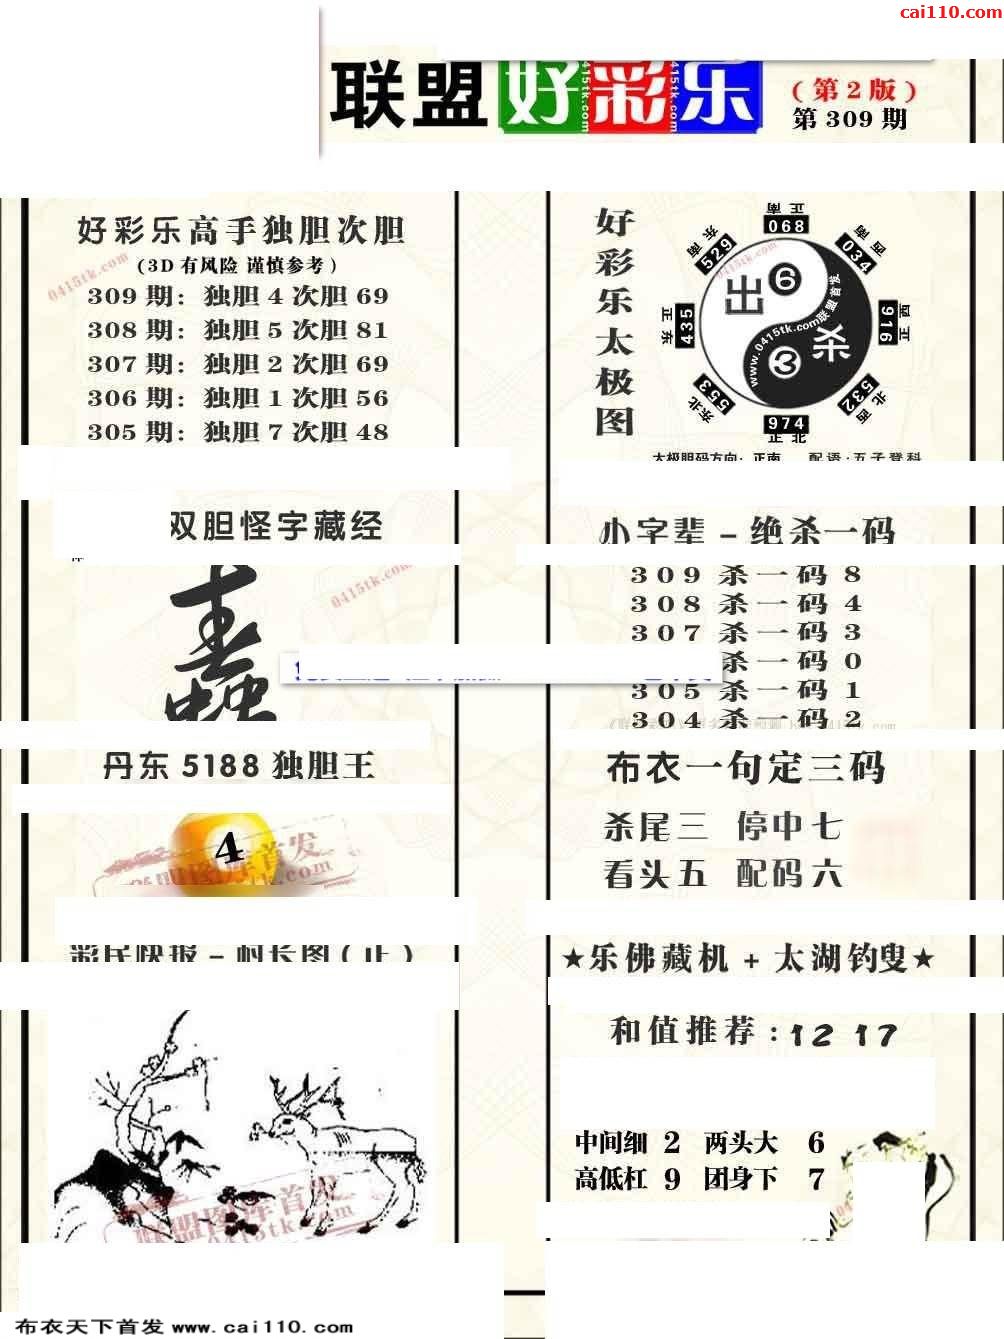 cai110.com
联盟好彩乐
(第2版)
第309期
好彩乐高手独胆次胆
(3D有风险 谨慎参考)
309期：独胆4次胆69
308期：独胆5次胆81
307期：独胆2次胆69
306期：独胆1次胆56
305期：独胆7次胆48
0415tk.com
好彩乐太极图
正南
068
西南
034
正西
916
西北
532
正北
974
东北
553
正东
435
东南
529
出6
杀3
www.0415tk.com联盟首发
太极胆码方向：正南 配语:五子登科
双胆怪字藏经
0415tk.com
小字辈－绝杀一码
309杀一码8
308杀一码4
307杀一码3
杀一码0
305杀一码1
304杀一码2
丹东5188独胆王
4
联盟图库首发
布衣一句定三码
杀尾三 停中七
看头五 配码六
彩民快报－村长图(正)
★乐佛藏机+太湖钓叟★
和值推荐:12 17
中间细 2 两头大 6
高低杠 9 团身下 7
联盟图库首发
0415tk.com
布衣天下首发 www.cai110.com